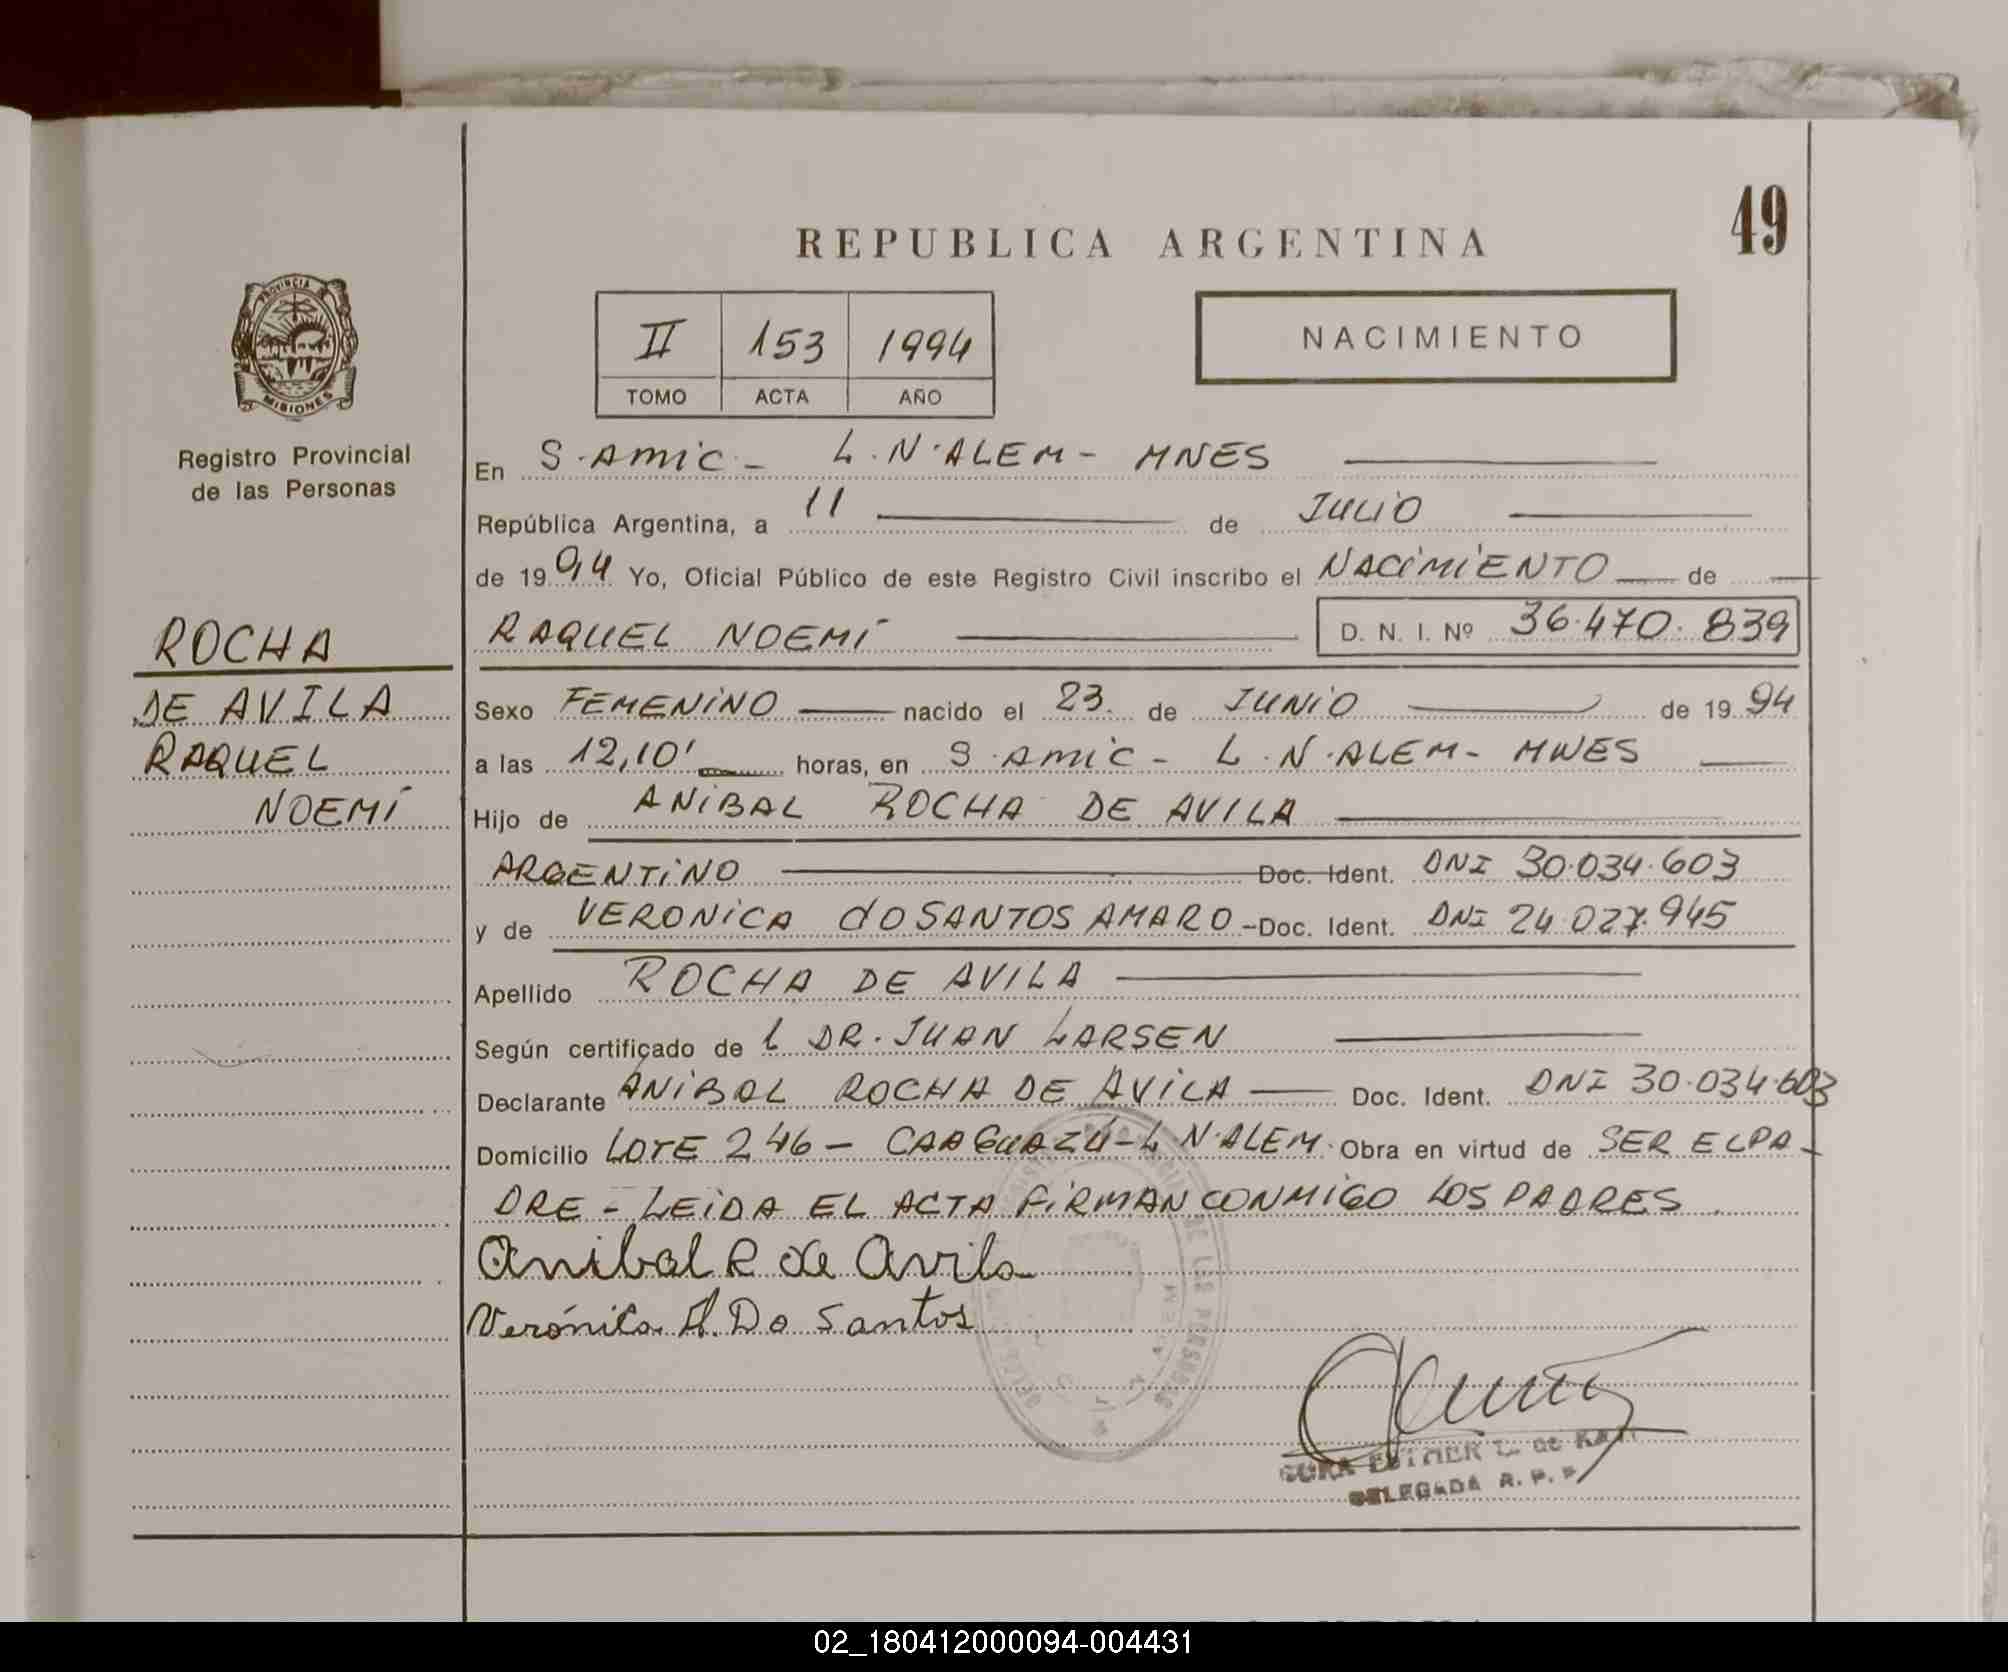 49
REPUBLICA ARGENTINA
PROVINCIA DE
MISIONES
Registro Provincial
de las Personas
II 153 1994
TOMO ACTA AÑO
NACIMIENTO
En S. AMIC - L. N. ALEM - MNES
República Argentina, a 11 de JULIO
de 1994 Yo, Oficial Público de este Registro Civil inscribo el NACIMIENTO de
RAQUEL NOEMI D. N. I. Nº 36.470.839
ROCHA
DE AVILA
RAQUEL
NOEMI
Sexo FEMENINO nacido el 23 de JUNIO de 1994
a las 12,10' horas, en S. AMIC - L. N. ALEM - MNES
Hijo de ANIBAL ROCHA DE AVILA
ARGENTINO Doc. Ident. DNI 30.034.603
y de VERONICA dO SANTOS AMARO - Doc. Ident. DNI 24.027.945
Apellido ROCHA DE AVILA
Según certificado de L DR. JUAN LARSEN
Declarante ANIBAL ROCHA DE AVILA Doc. Ident. DNI 30.034.603
Domicilio LOTE 246 - CAAGUAZÚ - L N. ALEM. Obra en virtud de SER EL PA-
DRE - LEIDA EL ACTA FIRMAN CONMIGO LOS PADRES
Anibal R de Avila
Verónica A. Do Santos
ESTHER L. de
DELEGADA R. P. P.
02_180412000094-004431